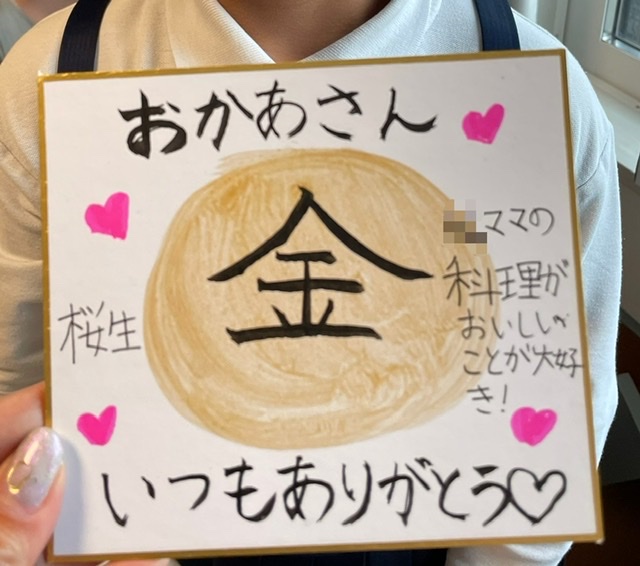 おかあさん
金
ママの
料理が
おいしい
ことが大好
き!
桜生
いつもありがとう♡